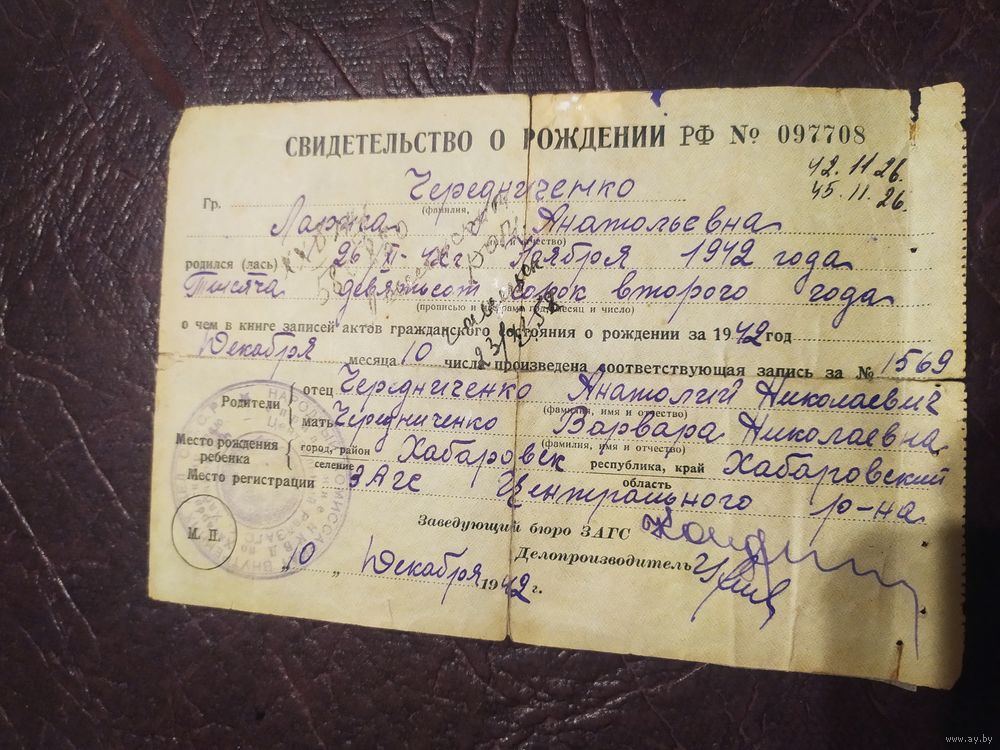 СВИДЕТЕЛЬСТВО О РОЖДЕНИИ РФ № 097708
42.11.26.
45.11.26.
Гр. Чередниченко
(фамилия,
Лариса Анатольевна
и отчество)
родился (лась) 26/XI-42г Ноября 1942 года
Тысяча девятьсот сорок второго года
(прописью и цифрами год, месяц и число)
о чем в книге записей актов гражданского состояния о рождении за 1942 год
Декабря месяца 10 числа произведена соответствующая запись за № 1569
Родители
отец Чередниченко Анатолий Николаевич
(фамилия, имя и отчество)
мать Чередниченко Варвара Николаевна
(фамилия, имя и отчество)
Место рождения ребенка
город, район селение Хабаровск республика, край область Хабаровский
Место регистрации ЗАГС Центрального р-на
М. П.
Заведующий бюро ЗАГС
Делопроизводитель
„10„ Декабря 1942 г.
www.ay.by